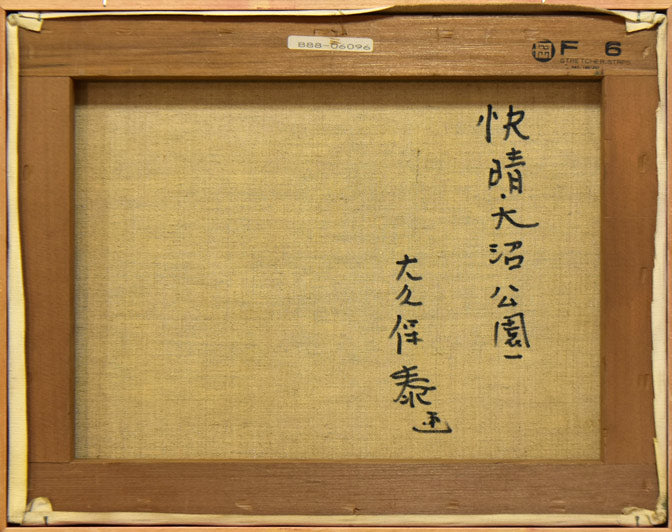 B88-06096
F 6
STRETCHER STRIPS
快晴・大沼公園
大久保泰